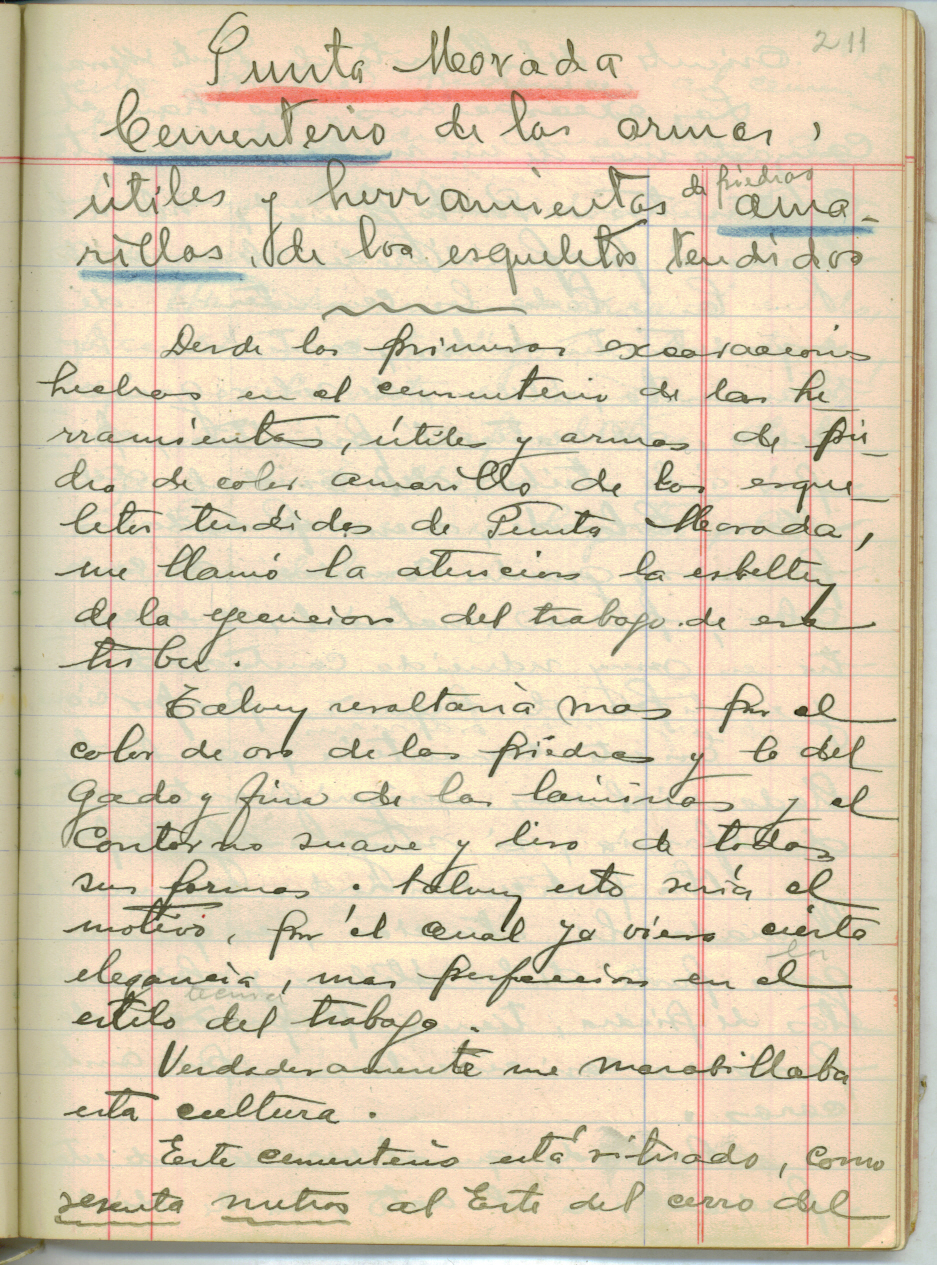 211
Punta Morada
Cementerio de las armas,
útiles y herramientas de piedras ama-
rillas, de los esqueletos tendidos
Desde las primeras excavaciones
hechas en el cementerio de las he-
rramientas, útiles y armas de pie-
dra de color amarillo de los esque-
letos tendidos de Punta Morada,
me llamó la atencion la esbeltez
de la ejecucion del trabajo de esa
tribu.
Talvez resaltaria mas por el
color de oro de las piedras y lo del
gado y fino de las laminas y el
contorno suave y liso de todas
sus formas. talvez esto sería el
motivo, por el cual yo viera cierta
elegancia, mas perfeccion en el
la
tecnica
estilo del trabajo.
Verdaderamente me marabillaba
esta cultura.
Este cementerio está situado, como
sesenta metros al Este del cerro del